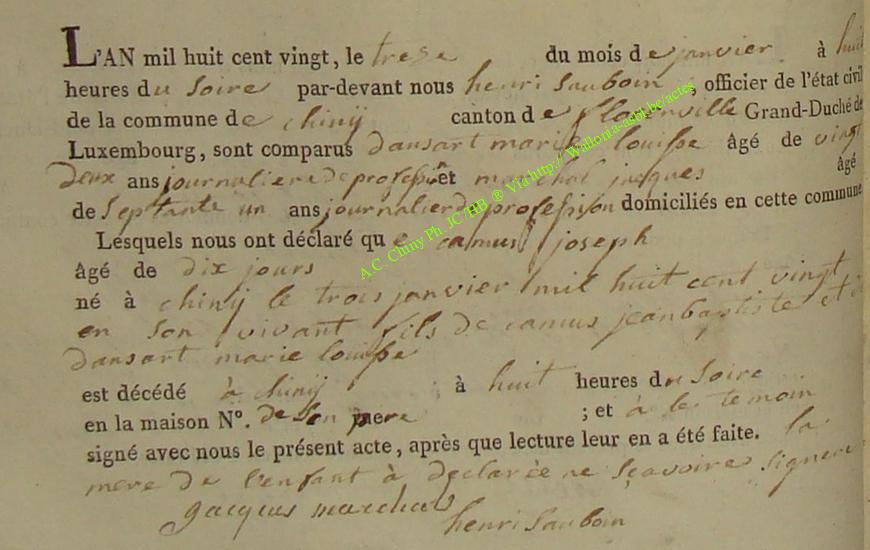 L'AN mil huit cent vingt, le treze du mois de janvier à huit
heures du soire par-devant nous henri sauboin, officier de l'état civil
de la commune de chinÿ canton de florenville Grand-Duché de
Luxembourg, sont comparus dansart marie louisse âgé de vingt
deux ans journaliere de profession et marchal jacques âgé
de septante un ans journalier de profession domiciliés en cette commune
Lesquels nous ont déclaré que camus joseph
âgé de dix jours
né à chinÿ le trois janvier mil huit cent vingt
en son vivant fils de camus jean baptiste et de
dansart marie louisse
est décédé à chinÿ à huit heures du soire
en la maison N°. de son pere ; et à les temoin
signé avec nous le présent acte, après que lecture leur en a été faite. la
mere de l'enfant à declarée ne sçavoire signere
jacques marchal
henri sauboin
A.C. Chiny Ph. JC/HB ® Via http:/ Wallonia-asbl.be/actes